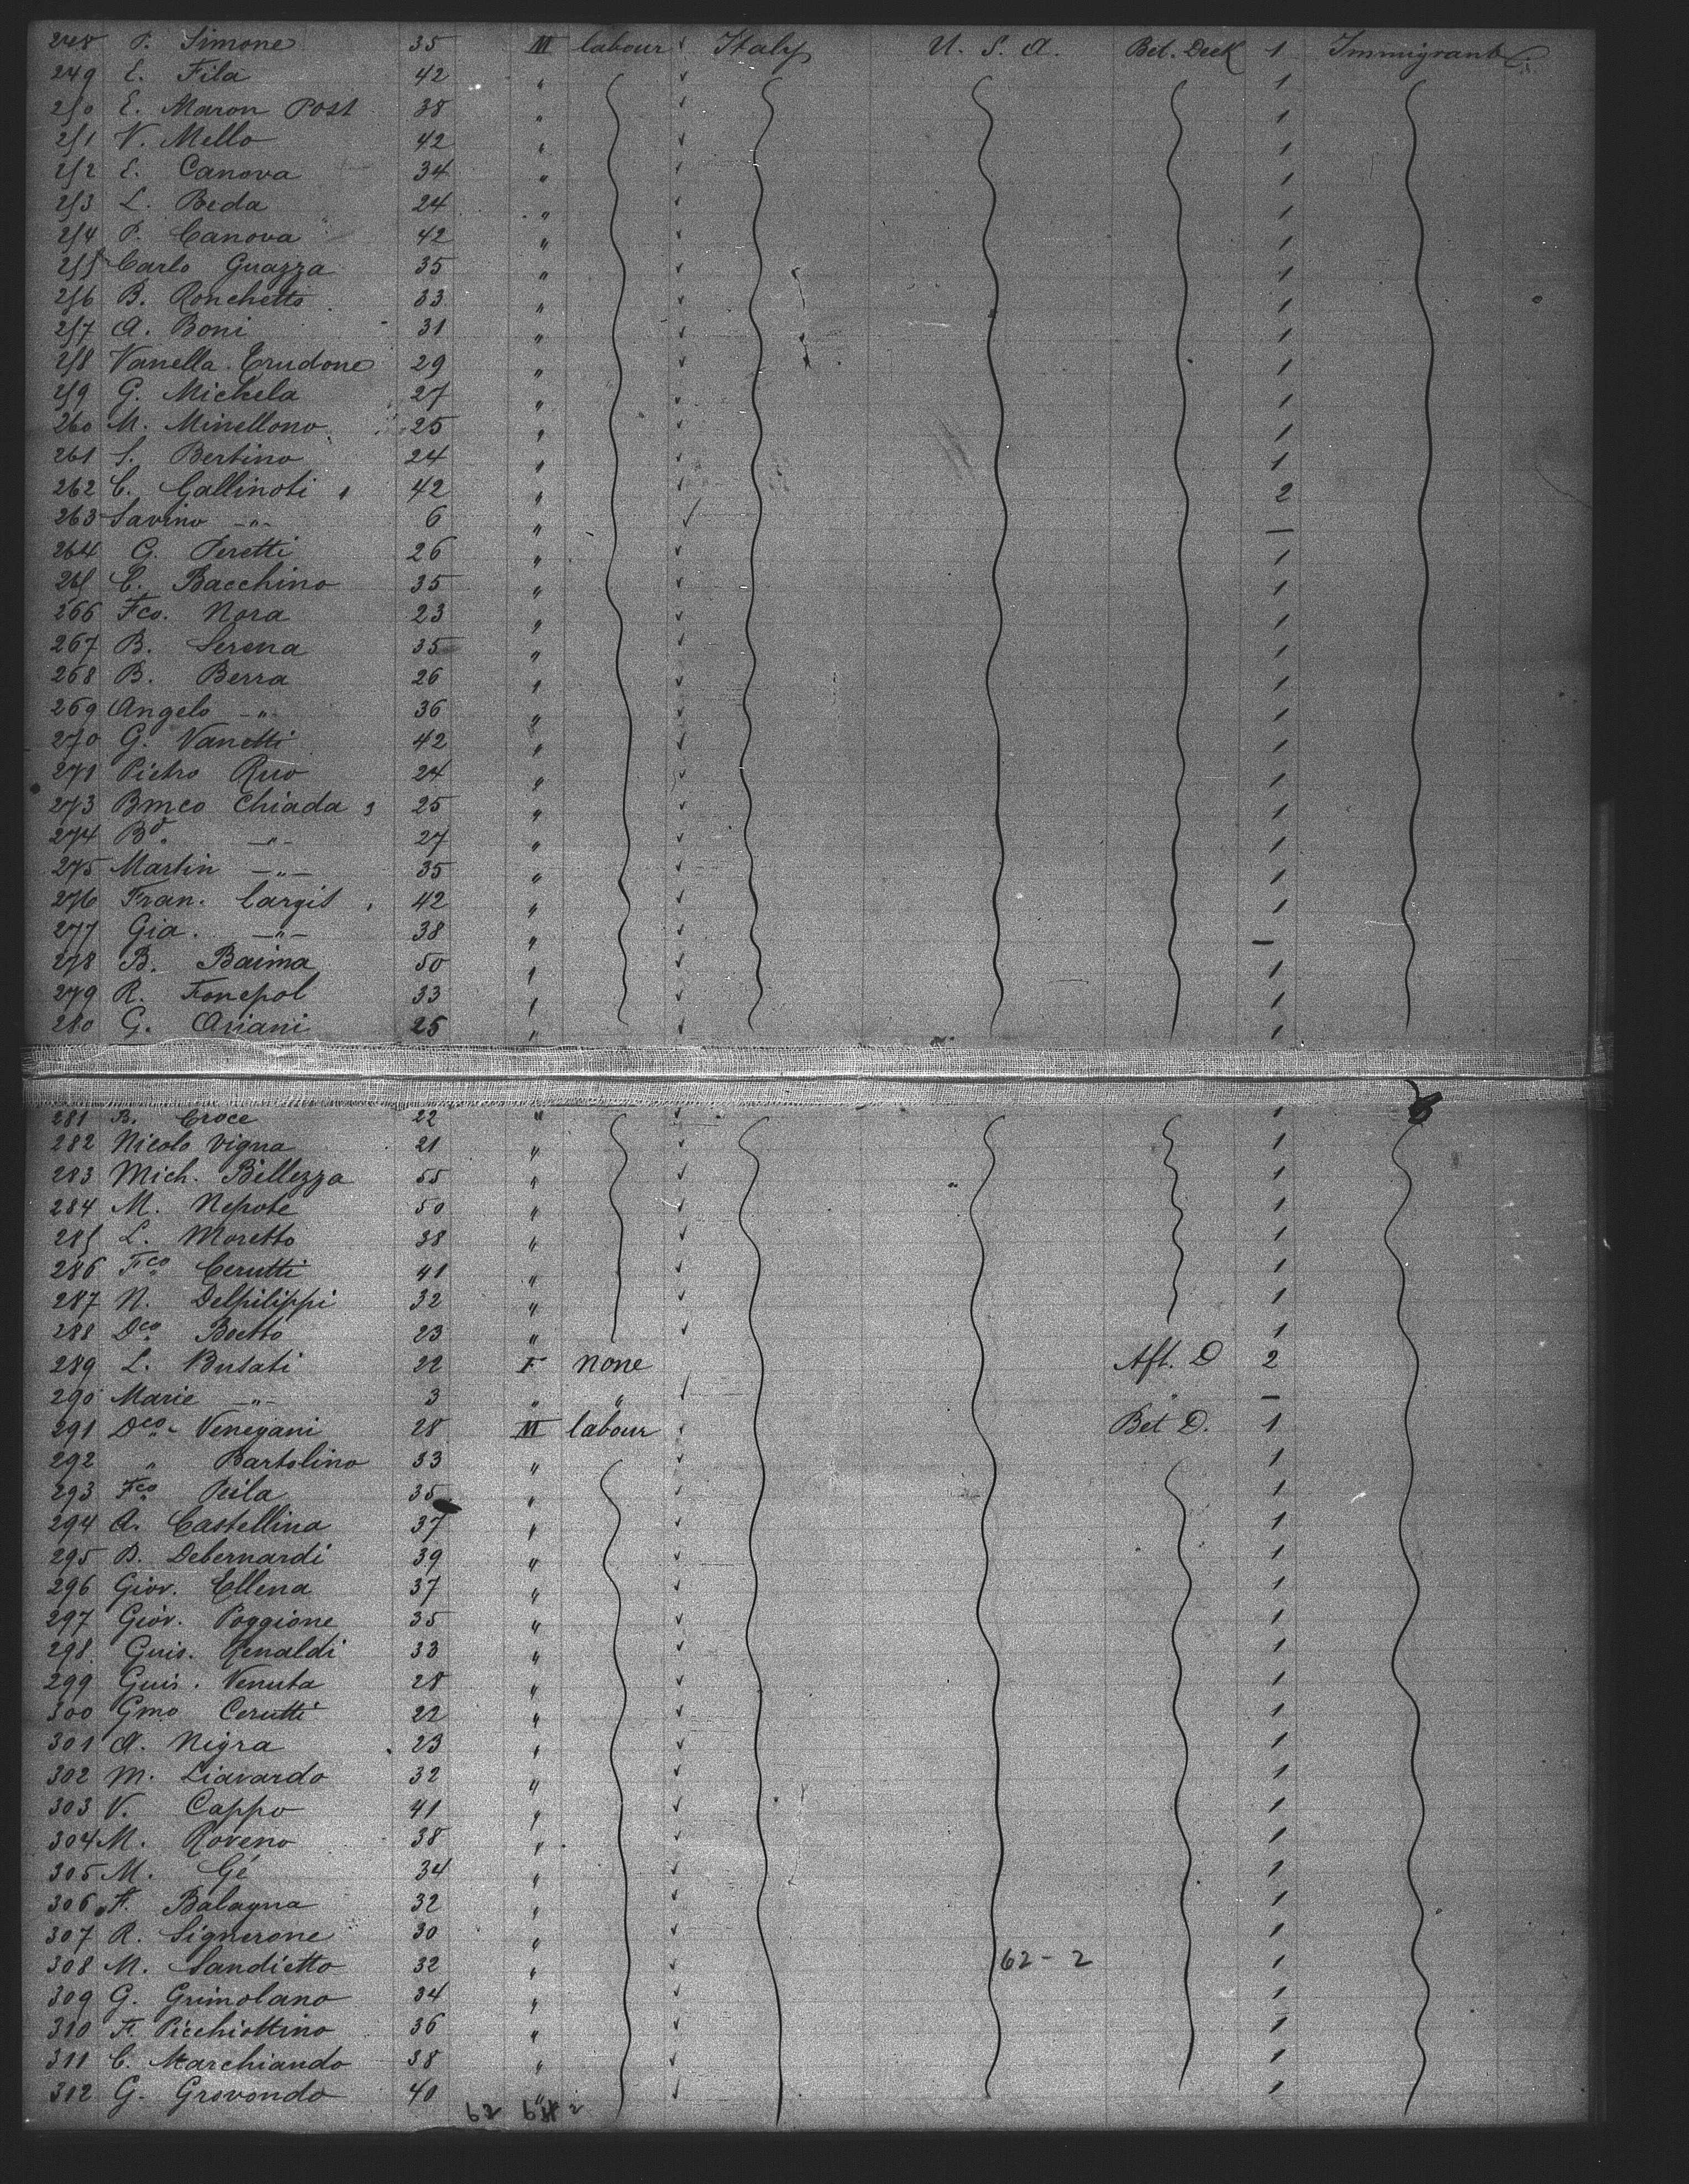 248 P. Simone 35 M labour ✓ Italy U. S. A. Bet. Deck 1 Immigrant
249 E. Fila 42 " ✓ 1
250 E. Maron Post 38 " ✓ 1
251 V. Mello 42 " ✓ 1
252 E. Canova 34 " ✓ 1
253 L. Beda 24 " ✓ 1
254 P. Canova 42 " ✓ 1
255 Carlo Guazza 35 " ✓ 1
256 B. Ronchetto 33 " ✓ 1
257 A. Boni 31 " ✓ 1
258 Vanella Erudone 29 " ✓ 1
259 G. Michela 27 " ✓ 1
260 M. Minellono 25 " ✓ 1
261 S. Bertino 24 " ✓ 1
262 C. Gallinoti 42 " ✓ 2
263 Savino -"- 6 " ✓ —
264 G. Peretti 26 " ✓ 1
265 C. Bacchino 35 " ✓ 1
266 Fco. Nora 23 " ✓ 1
267 B. Serena 35 " ✓ 1
268 B. Berra 26 " ✓ 1
269 Angelo -"- 36 " ✓ 1
270 G. Vanetti 42 " ✓ 1
271 Pietro Ruo 24 " ✓ 1
273 Bmco Chiada 25 " ✓ 1
274 Bd. -"- 27 " ✓ 1
275 Martin -"- 35 " ✓ 1
276 Fran. Cargit 42 " ✓ 1
277 Gia. -"- 38 " ✓ —
278 B. Baima 50 " ✓ 1
279 R. Fonepol 33 " ✓ 1
280 G. Ariani 25 " ✓ 1
281 B. Croce 22 " ✓ 1
282 Nicolo Vigna 21 " ✓ 1
283 Mich. Billezza 55 " ✓ 1
284 M. Nepote 50 " ✓ 1
285 L. Moretto 38 " ✓ 1
286 Fco. Cerutti 41 " ✓ 1
287 N. Delpilippi 32 " ✓ 1
288 Dco. Boetto 23 " ✓ 1
289 L. Busati 22 F none Aft. D 2
290 Marie -"- 3 " " ✓ " —
291 Dco. Venegani 28 M labour ✓ Bet D. 1
292 " Bartolino 33 " ✓ 1
293 Fco. Peila 35 " ✓ 1
294 A. Castellina 37 " ✓ 1
295 D. Debernardi 39 " ✓ 1
296 Giov. Ellena 37 " ✓ 1
297 Giov. Poggione 35 " ✓ 1
298 Guis. Renaldi 33 " ✓ 1
299 Guis. Venuta 28 " ✓ 1
300 Gmo Cerutti 22 " ✓ 1
301 A. Nigra 23 " ✓ 1
302 M. Liavardo 32 " ✓ 1
303 V. Cappo 41 " ✓ 1
304 M. Roveno 38 " ✓ 1
305 M. Gé 34 " ✓ 1
306 F. Balagna 32 " ✓ 1
307 R. Signerone 30 " ✓ 1
308 M. Sandietto 32 " ✓ 62-2 1
309 G. Grimolano 34 " ✓ 1
310 F. Picchiottino 36 " ✓ 1
311 C. Marchiando 38 " ✓ 1
312 G. Grovondo 40 " ✓ 1
62